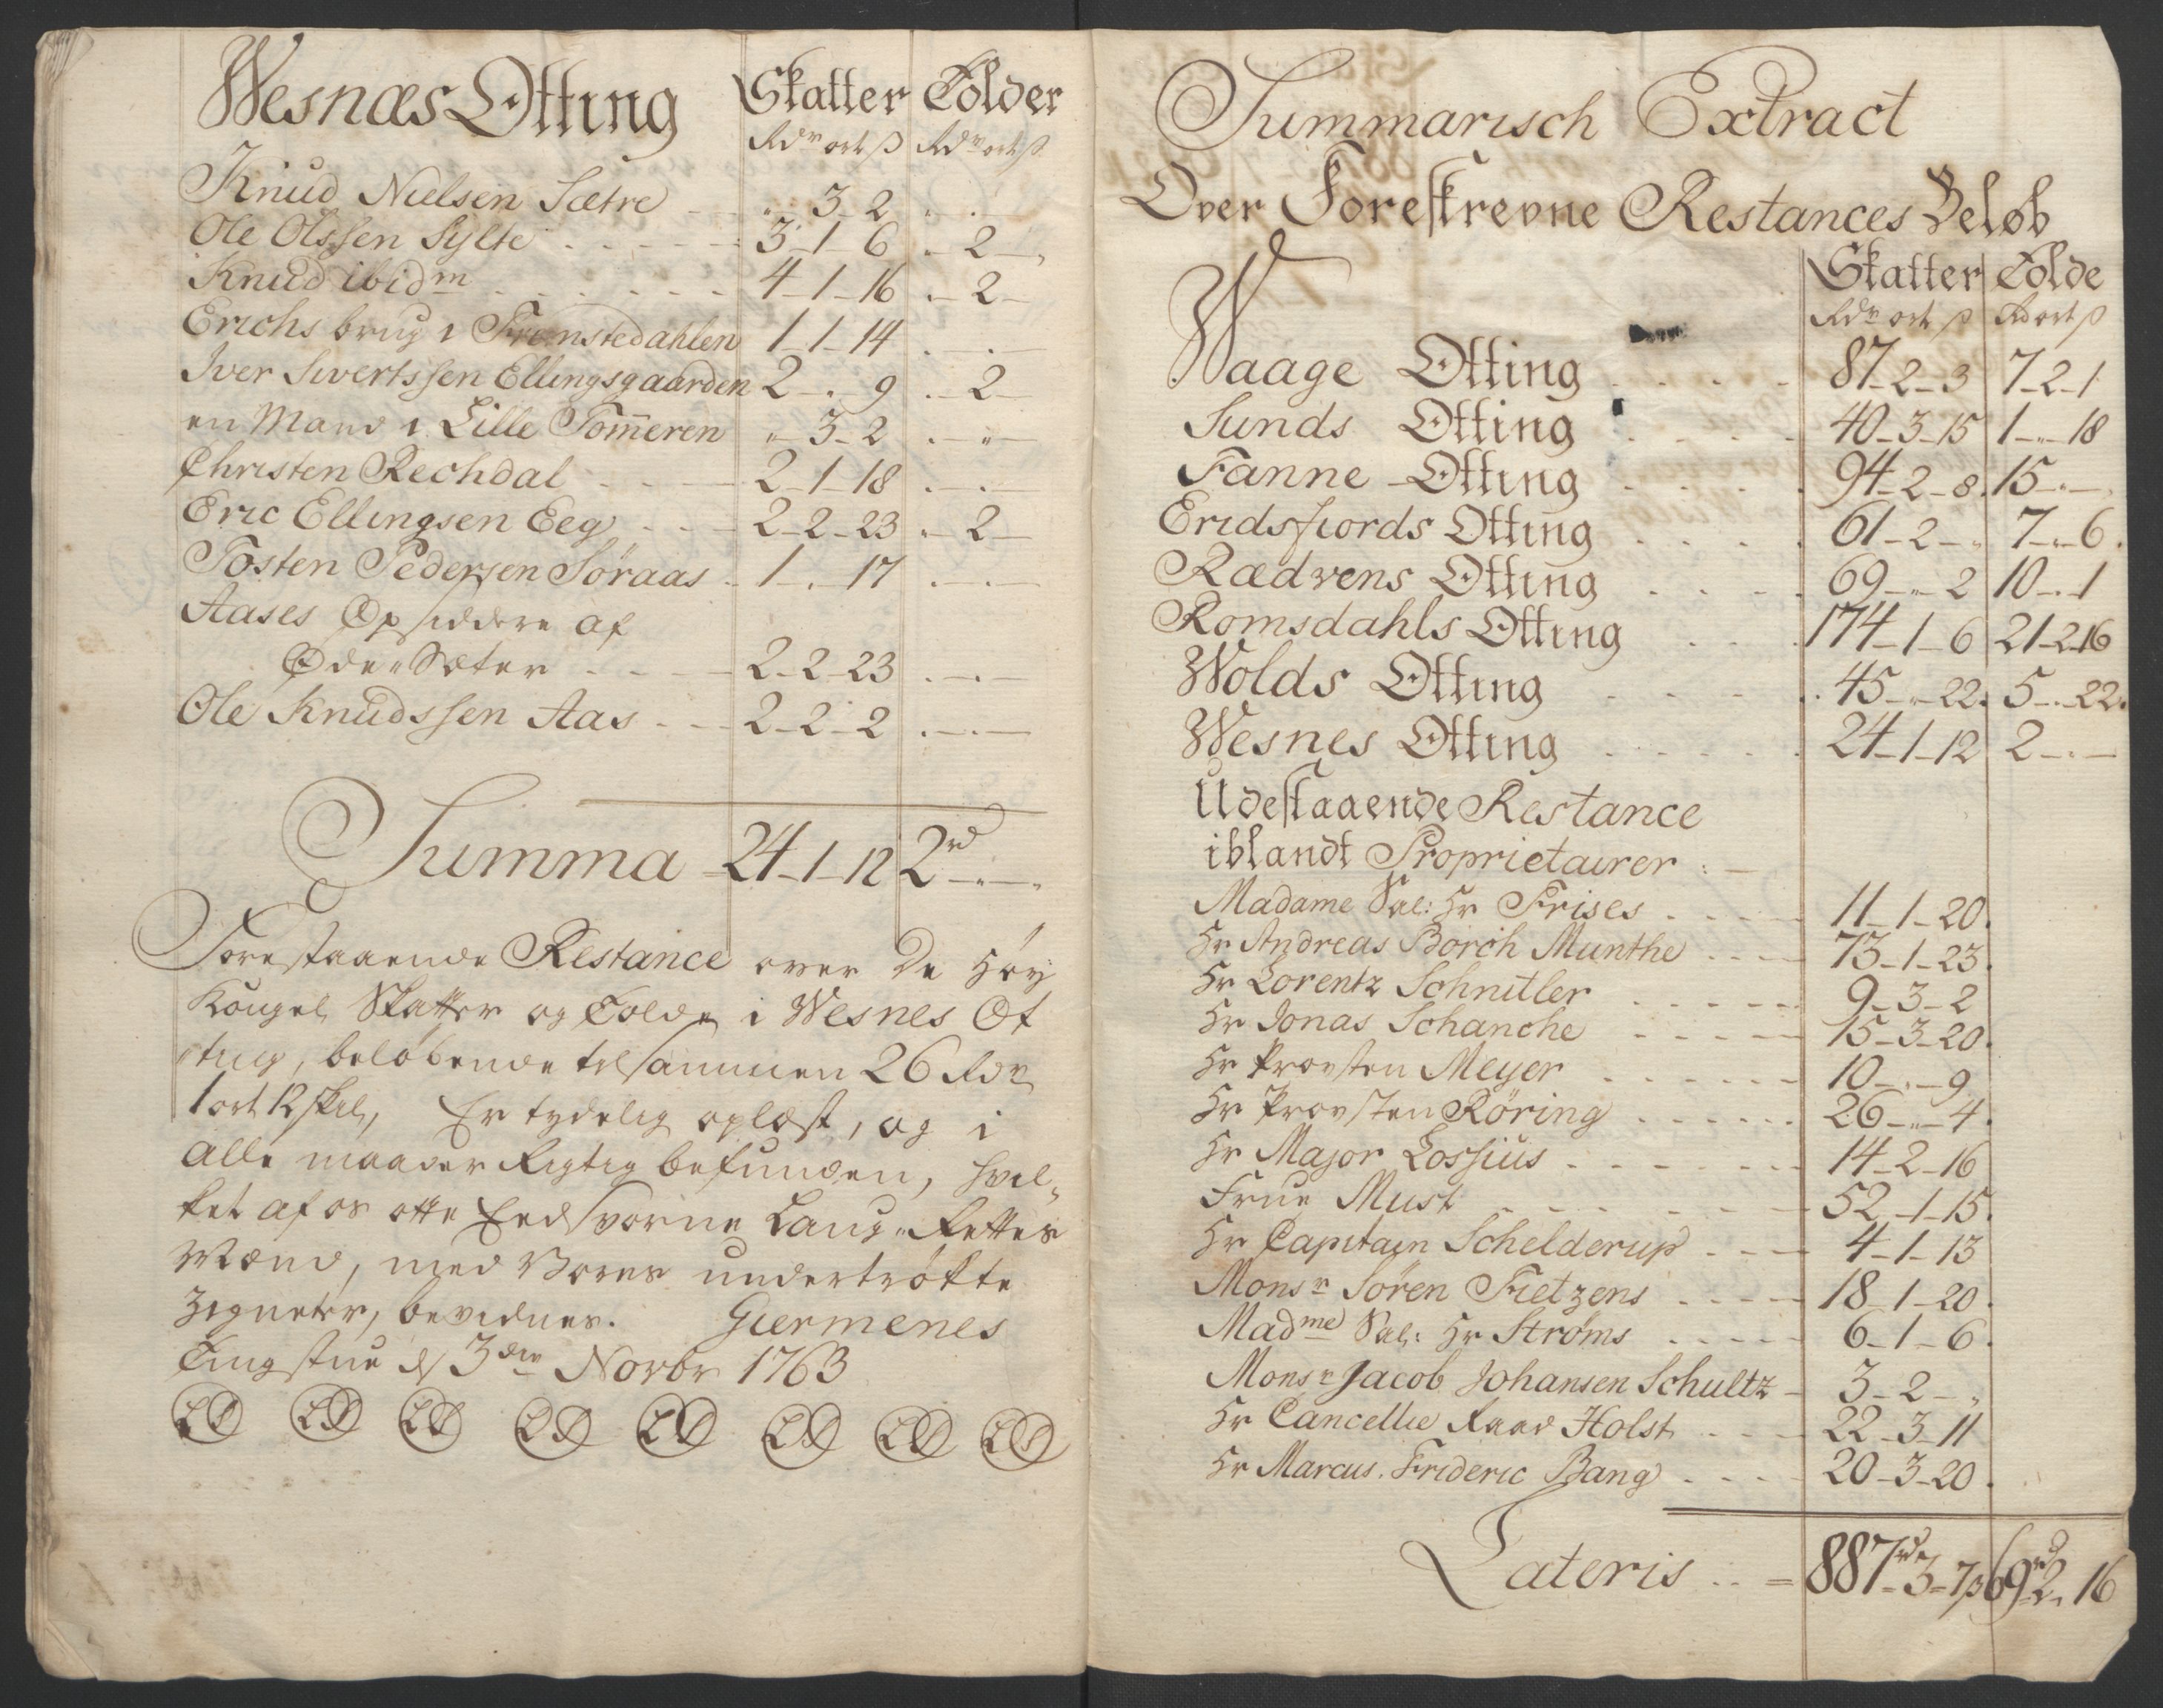 Wesnæs Otting Skatter Tolder
Rdr ort ß Rdr ort ß
Knud Nielsen Sætre - " 3 - 2 " . —
Ole Olssen Sylte . . . . 3 - 1 - 6 . - 2 - ,
Knud ibidm . . . . . . 4 - 1 - 16 . - 2 -
Erichs brug i 1 - 1 - 14 . . —
Iver Sivertssen Ellingsgaarden 2 - . 9 . - 2 -
en Mand i Lille Tom̄eren " - 3 - 2 . - " -
Christen Rechdal - - - 2 - 1 - 18 . - . -
Eric Ellingsen Eeg - - - 2 - 2 - 23 " - 2 -
Tosten Pedersen Söraas . 1 - . - 17 . - . -
Aases Opsiddere af
Øde " Sæter - - - 2 - 2 - 23 . - . -
Ole Knudssen Aas - - - 2 - 2 - 2 . - . -
Summa - 24 - 1 - 12 2rd - " -
Forestaaende Restance over De Høy
Kongel Skatter og Tolde i Wesnes Ot
ting, beløbende tilsammen 26 Rdr
1 ort 12 skil, Er tydelig oplæst, og i
alle maader Rigtig befunden, hvil-
ket af os otte Eedsvorne Laug-Rettes
Mænd, med Vores undertrøkte
Zigneter, bevidnes. Giermenes
Tingstue d 3die Novbr 1763
LS LS LS LS LS LS LS LS
Summarisch Extract
Over Foreskrevne Restances Beløb
Skatter Tolde
Rdr ort ß Rd ort ß
Waage Otting . . . . 87 - 2 - 3 7 - 2 - 1
Sunds Otting . . . . 40 - 3 - 15 1 - " - 18
Fanne Otting . . . . 94 - 2 - 8 . 15 - . -
Eridsfiords Otting . . . . 61 - 2 - " 7 - " - 6 .
Rædvens Otting . . . . 69 - " - 2 10 - . - 1
Romsdahls Otting . . . 174 - 1 - 6 21 - 2 - 16
Wolds Otting . . . . 45 - " - 22 . 5 - . - 22 .
Wesnes Otting . . . . . 24 - 1 - 12 2 - . -
Udestaaende Restance
iblandt Proprietairer : -
Madame Sal: Hr Frises . . . . 11 - 1 - 20 .
Hr Andreas Borch Munthe . . . 73 - 1 - 23 .
Hr Lorentz Schnitler . . . . . 9 - 3 - 2
Hr Jonas Schanche . . . . . 15 - 3 - 20 .
Hr Provsten Meyer . . . . . . 10 - . - 9
Hr Provsten Röring . . . . . 26 - " - 4 .
Hr Major Lossius . . . . . . 14 - 2 - 16
Frue Must . . . . . . . 52 - 1 - 15 .
Hr Capitain Schelderup . . . 4 - 1 - 13
Monsr Sören Fietzens . . . . 18 - 1 - 20 .
Madme Sal: Hr Ströms . . . . 6 - 1 - 6 .
Monsr Jacob Johansen Schultz - 3 - 2 - "
Hr Cancellie Raad Holst . . . 22 - 3 - 11
Hr Marcus. Frideric Bang . . . 20 - 3 - 20 .
Lateris . . = 887rd - 3 - 7ß 69rd 2 . 16